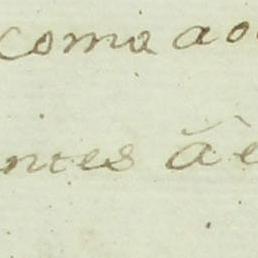 como ao
ntes ã e